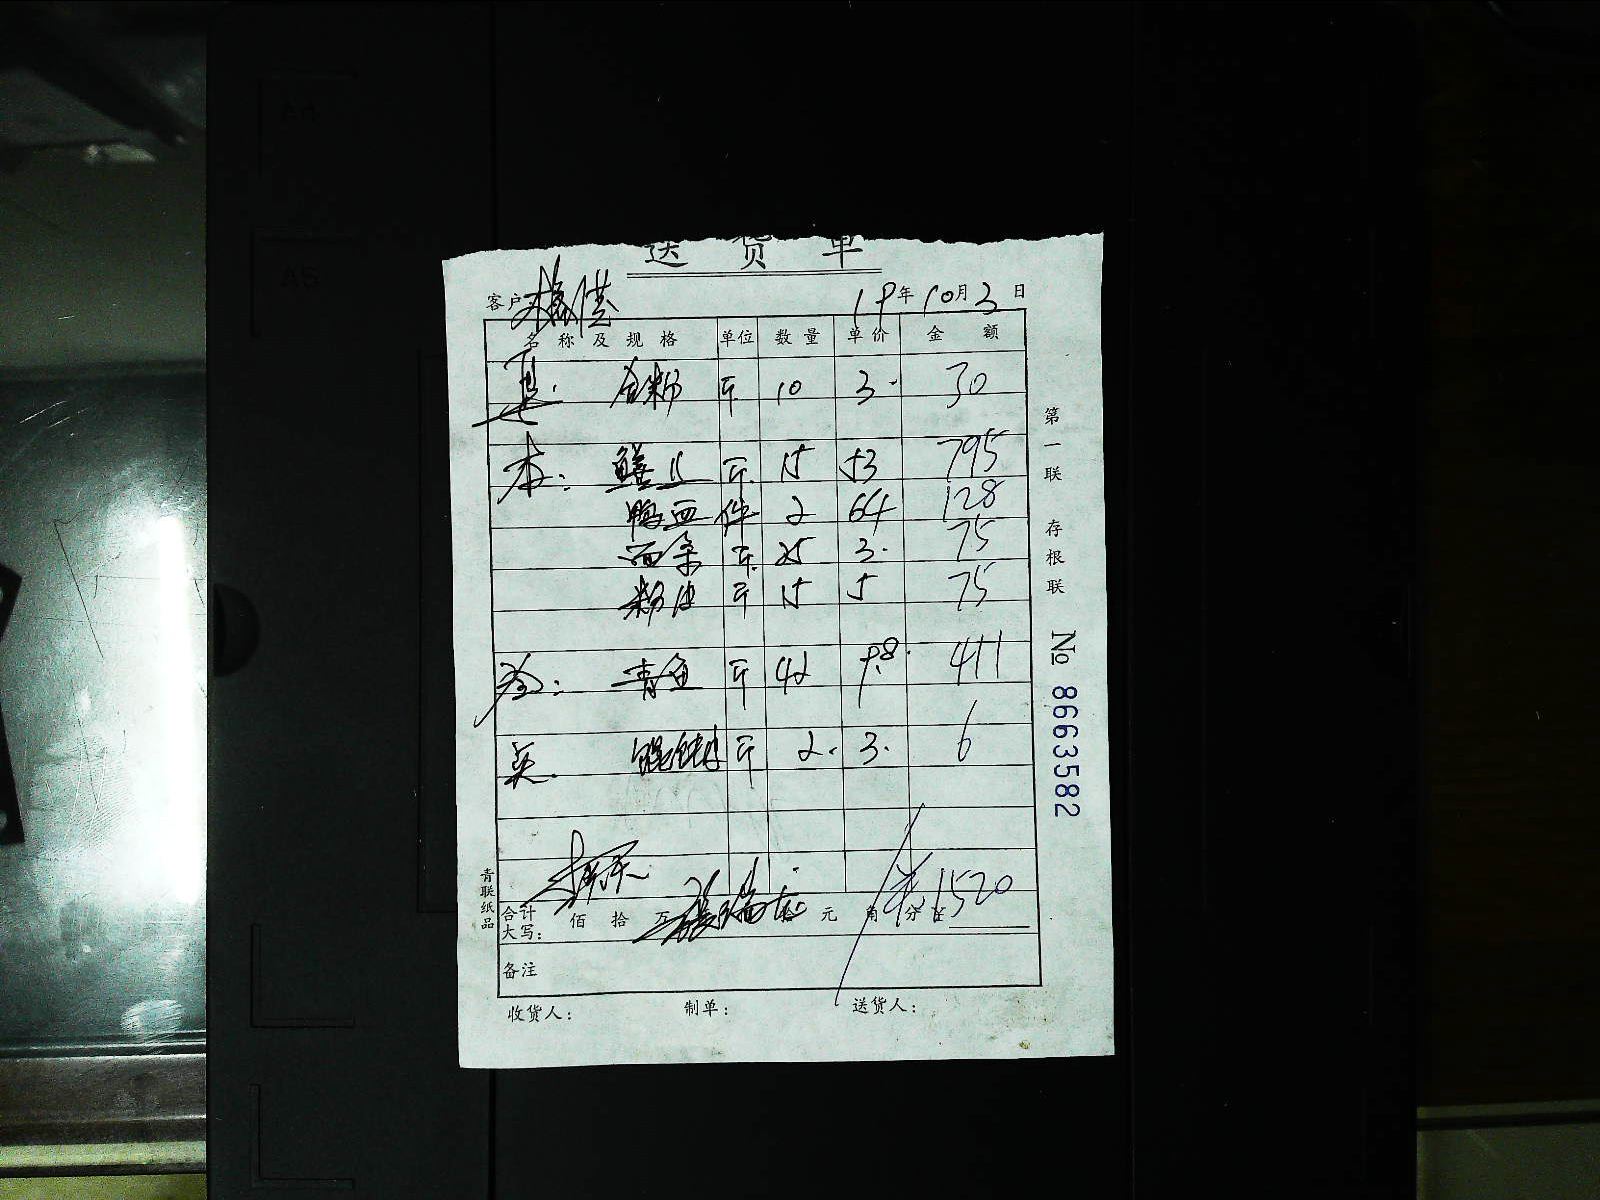 送货单
客户 19年10月3日
名称及规格 单位 数量 单价 金额
斤 10 3. 30
本: 鳝 斤 15 53 795
鸭血 件 2 64 128
面条 斤 25 3. 75
粉 斤 15 5 75
青鱼 斤 42 9.8. 411
馄饨皮 斤 2. 3. 6
合计大写: 佰 拾 万 元 角 分 ¥1520
备注
收货人: 制单: 送货人:
第一联 存根联
№ 8663582
青联纸品
A5